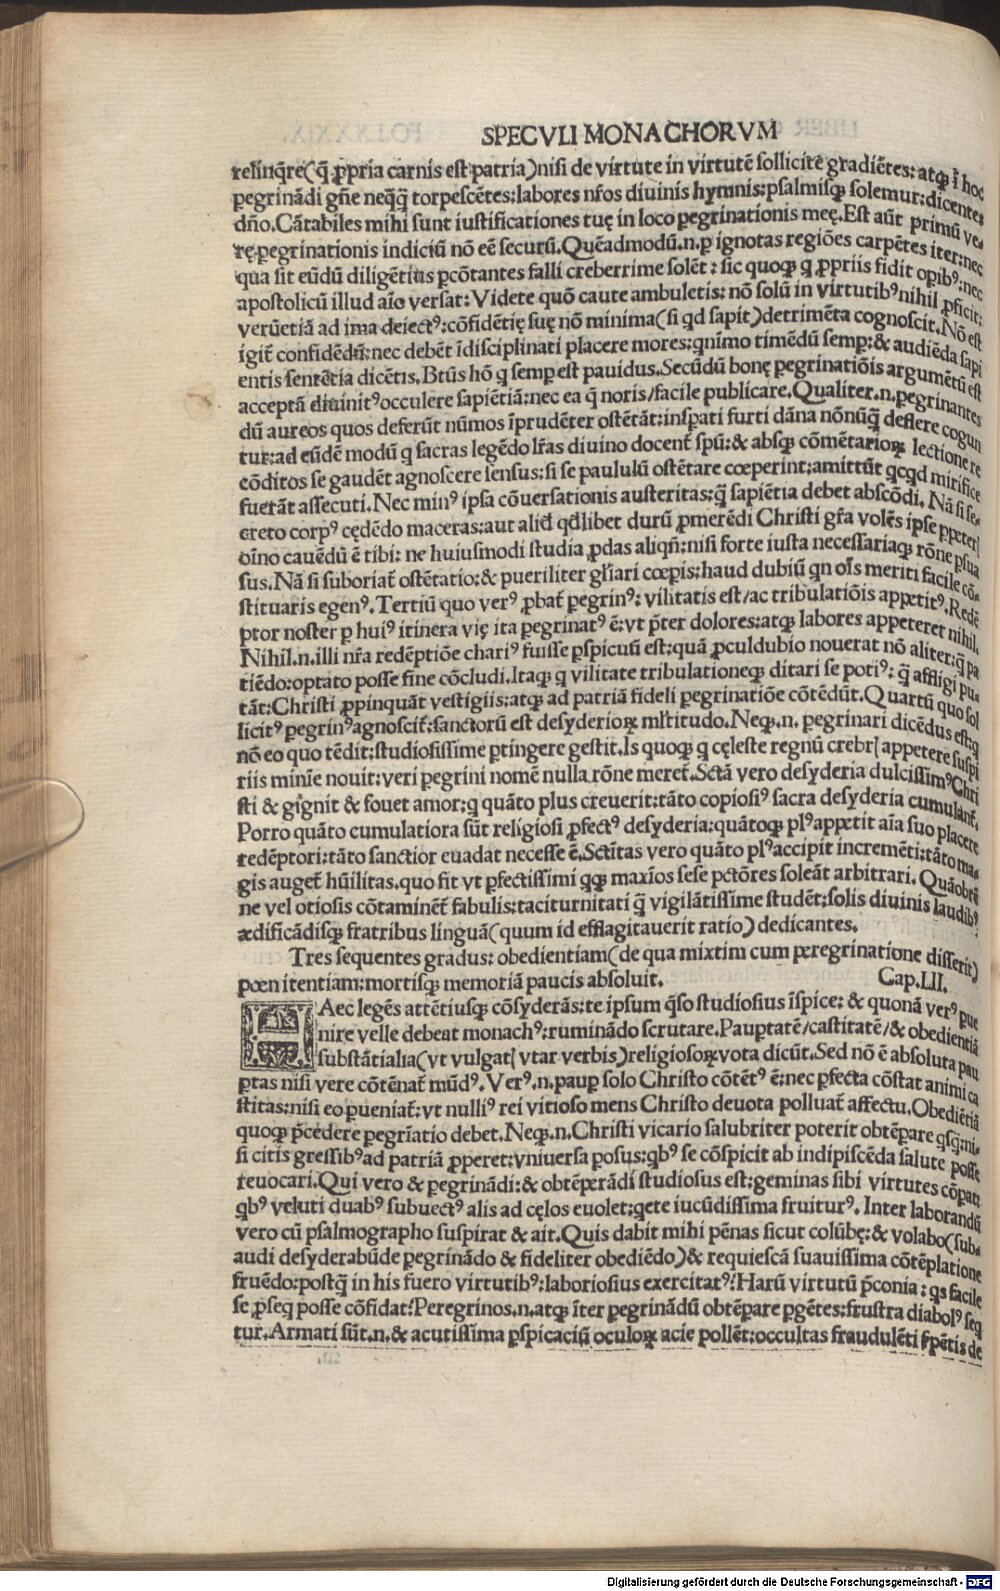 SPECVLI MONACHORVM
relinq̃re(q̃ ꝓpria carnis est patria)nisi de virtute in virtutẽ sollicitẽ gradiẽtes: atqꝫ ĩ hoc
ꝑegrinãdi gñe neq̃q̃ torpescẽtes:labores nr̃os diuinis hymnis:psalmisqꝫ solemur:dicentes
dño.Cãtabiles mihi sunt iustificationes tuę in loco ꝑegrinationis meę.Est aũt primũ ve
rę ꝑegrinationis indiciũ nõ eẽ securũ.Quẽadmodũ.n.ꝑ ignotas regiões carpẽtes iter:nec
qua sit eũdũ diligẽtius ꝑcõtantes falli creberrime solẽt: sic quoqꝫ q ꝓpriis fidit oꝑibꝰ:nec
apostolicũ illud aĩo versat:Videte quõ caute ambuletis: nõ solũ in virtutibꝰ nihil ꝓficit:
verũetiã ad ima deiectꝰ:cõfidẽtię suę nõ minima(si qd sapit)detrimẽta cognoscit.Nõ est
igit̃ confidẽdũ:nec debẽt ĩdisciplinati placere mores:qnĩmo timẽdũ semꝑ:& audiẽda sapi
entis sentẽtia dicẽtis.Btũs hõ q semꝑ est pauidus.Secũdũ bonę ꝑegrinatiõis argumẽtũ est
acceptã diuinitꝰ occulere sapiẽtiã:nec ea q̃ noris/facile publicare.Qualiter.n.ꝑegrinantes
dũ aureos quos deferũt nũmos ĩprudẽter ostẽtãt:insꝑati furti dãna nõnũq̃ deflere cogun
tur:ad eũdẽ modũ q sacras legẽdo lr̃as diuino docent̃ spũ:& absqꝫ cõmẽtarioꝝ lectione re
cõditos se gaudẽt agnoscere sensus:si se paululũ ostẽtare cœperint:amittũt qcqd mirifice
fuerãt assecuti.Nec minꝰ ipsa cõuersationis austeritas:q̃ sapiẽtia debet abscõdi. Nã si se
creto corpꝰ cędẽdo maceras:aut aliđ qđlibet durũ ꝓmerẽdi Christi gr̃a volẽs ipse ꝑpeteris
oĩno cauẽdũ ẽ tibi: ne huiusmodi studia ꝓdas aliqñ:nisi forte iusta necessariaqꝫ rõne ꝑsua
sus.Nã si suboriat̃ ostẽtatio:& pueriliter gl̃iari cœpis:haud dubiũ qn oĩs meriti facile cõ-
stituaris egenꝰ.Tertiũ quo verꝰ ꝓbat̃ ꝑegrinꝰ: vilitatis est/ac tribulatiõis appetitꝰ.Redẽ
ptor noster ꝑ huiꝰ itinera vię ita ꝑegrinatꝰ ẽ:vt p̃ter dolores:atqꝫ labores appeteret nihil.
Nihil.n.illi nr̃a redẽptiõe chariꝰ fuisse ꝑspicuũ est:quã ꝓculdubio nouerat nõ aliter:q̃ pa
tiẽdo:optato posse fine cõcludi.Itaqꝫ q vilitate tribulationeqꝫ ditari se potiꝰ: q̃ affligi pu-
tãt:Christi ꝓpinquãt vestigiis:atqꝫ ad patriã fideli ꝑegrinatiõe cõtẽdũt.Quartũ quo sol
licitꝰ ꝑegrinꝰ agnoscit̃:sanctorũ est desyderioꝝ ml̃titudo.Neqꝫ.n. ꝑegrinari dicẽdus est:q
nõ eo quo tẽdit:studiosissime ꝑtingere gestit.Is quoqꝫ q cęleste regnũ crebris appetere suspi
riis miniẽ nouit:veri ꝑegrini nomẽ nulla rõne meret̃.Sctã vero desyderia dulcissimꝰ Chri
sti & gignit & fouet amor:q quãto plus creuerit:tãto copiosiꝰ sacra desyderia cumulant̃.
Porro quãto cumulatiora sũt religiosi ꝓfectꝰ desyderia:quãtoqꝫ plꝰ appetit aĩa suo placere
redẽptori:tãto sanctior euadat necesse ẽ.Sctĩtas vero quãto plꝰ accipit incremẽti:tãto ma-
gis auget̃ hũilitas.quo fit vt ꝑfectissimi qqꝫ maxĩos sese pctõres soleãt arbitrari. Quãobrẽ
ne vel otiosis cõtaminẽt̃ fabulis:taciturnitati q̃ vigilãtissime studẽt:solis diuinis laudibꝰ
ædificãdisqꝫ fratribus linguã(quum id efflagitauerit ratio)dedicantes.
Tres sequentes gradus: obedientiam(de qua mixtim cum peregrinatione disserit)
pœnitentiam:mortisqꝫ memoriã paucis absoluit. Cap.LII.
HAec legẽs attẽtiusqꝫ cõsyderãs:te ipsum q̃so studiosius ĩspice: & quonã verꝰ ꝑue
nire velle debeat monachꝰ:ruminãdo scrutare.Pauptatẽ/castitatẽ/& obedientiã
substãtialia(vt vulgatis vtar verbis)religiosoꝝ vota dicũt.Sed nõ ẽ absoluta pau
ꝑtas nisi vere cõtẽnat̃ mũdꝰ. Verꝰ.n.pauꝑ solo Christo cõtẽtꝰ ẽ:nec ꝑfecta cõstat animi ca
stitas:nisi eo ꝑueniat̃:vt nulliꝰ rei vitioso mens Christo deuota polluat̃ affectu.Obediẽtiã
quoqꝫ p̃cedere ꝑegrĩatio debet.Neqꝫ.n.Christi vicario salubriter poterit obtẽꝑare qsq̃:ni-
si citis gressibꝰ ad patriã ꝓperet:vniuersa ꝑosus:qbꝰ se cõspicit ab indipiscẽda salute posse
reuocari.Qui vero & ꝑegrinãdi:& obtẽꝑerãdi studiosus est:geminas sibi virtutes cõꝑat:
qbꝰ veluti duabꝰ subuectꝰ alis ad cęlos euolet:qete iucũdissima fruiturꝰ. Inter laborandũ
vero cũ psalmographo suspirat & ait.Quis dabit mihi pẽnas sicut colũbę:& volabo(sub-
audi desyderabũde ꝑegrinãdo & fideliter obediẽdo)& requiescã suauissima cõtẽplatione
fruẽdo:postq̃ in his fuero virtutibꝰ:laboriosius exercitatꝰ?Harũ virtutũ p̃conia: qs facile
se ꝓseq posse cõfidat?Peregrinos.n.atqꝫ ĩter ꝑegrinãdũ obtẽꝑare ꝑgẽtes:frustra diabolꝰ seq
tur.Armati sũt.n.& acutissima ꝑspicaciũ oculoꝝ acie pollẽt:occultas fraudulẽti sꝑẽtis de
Digitalisierung gefördert durch die Deutsche Forschungsgemeinschaft - DFG